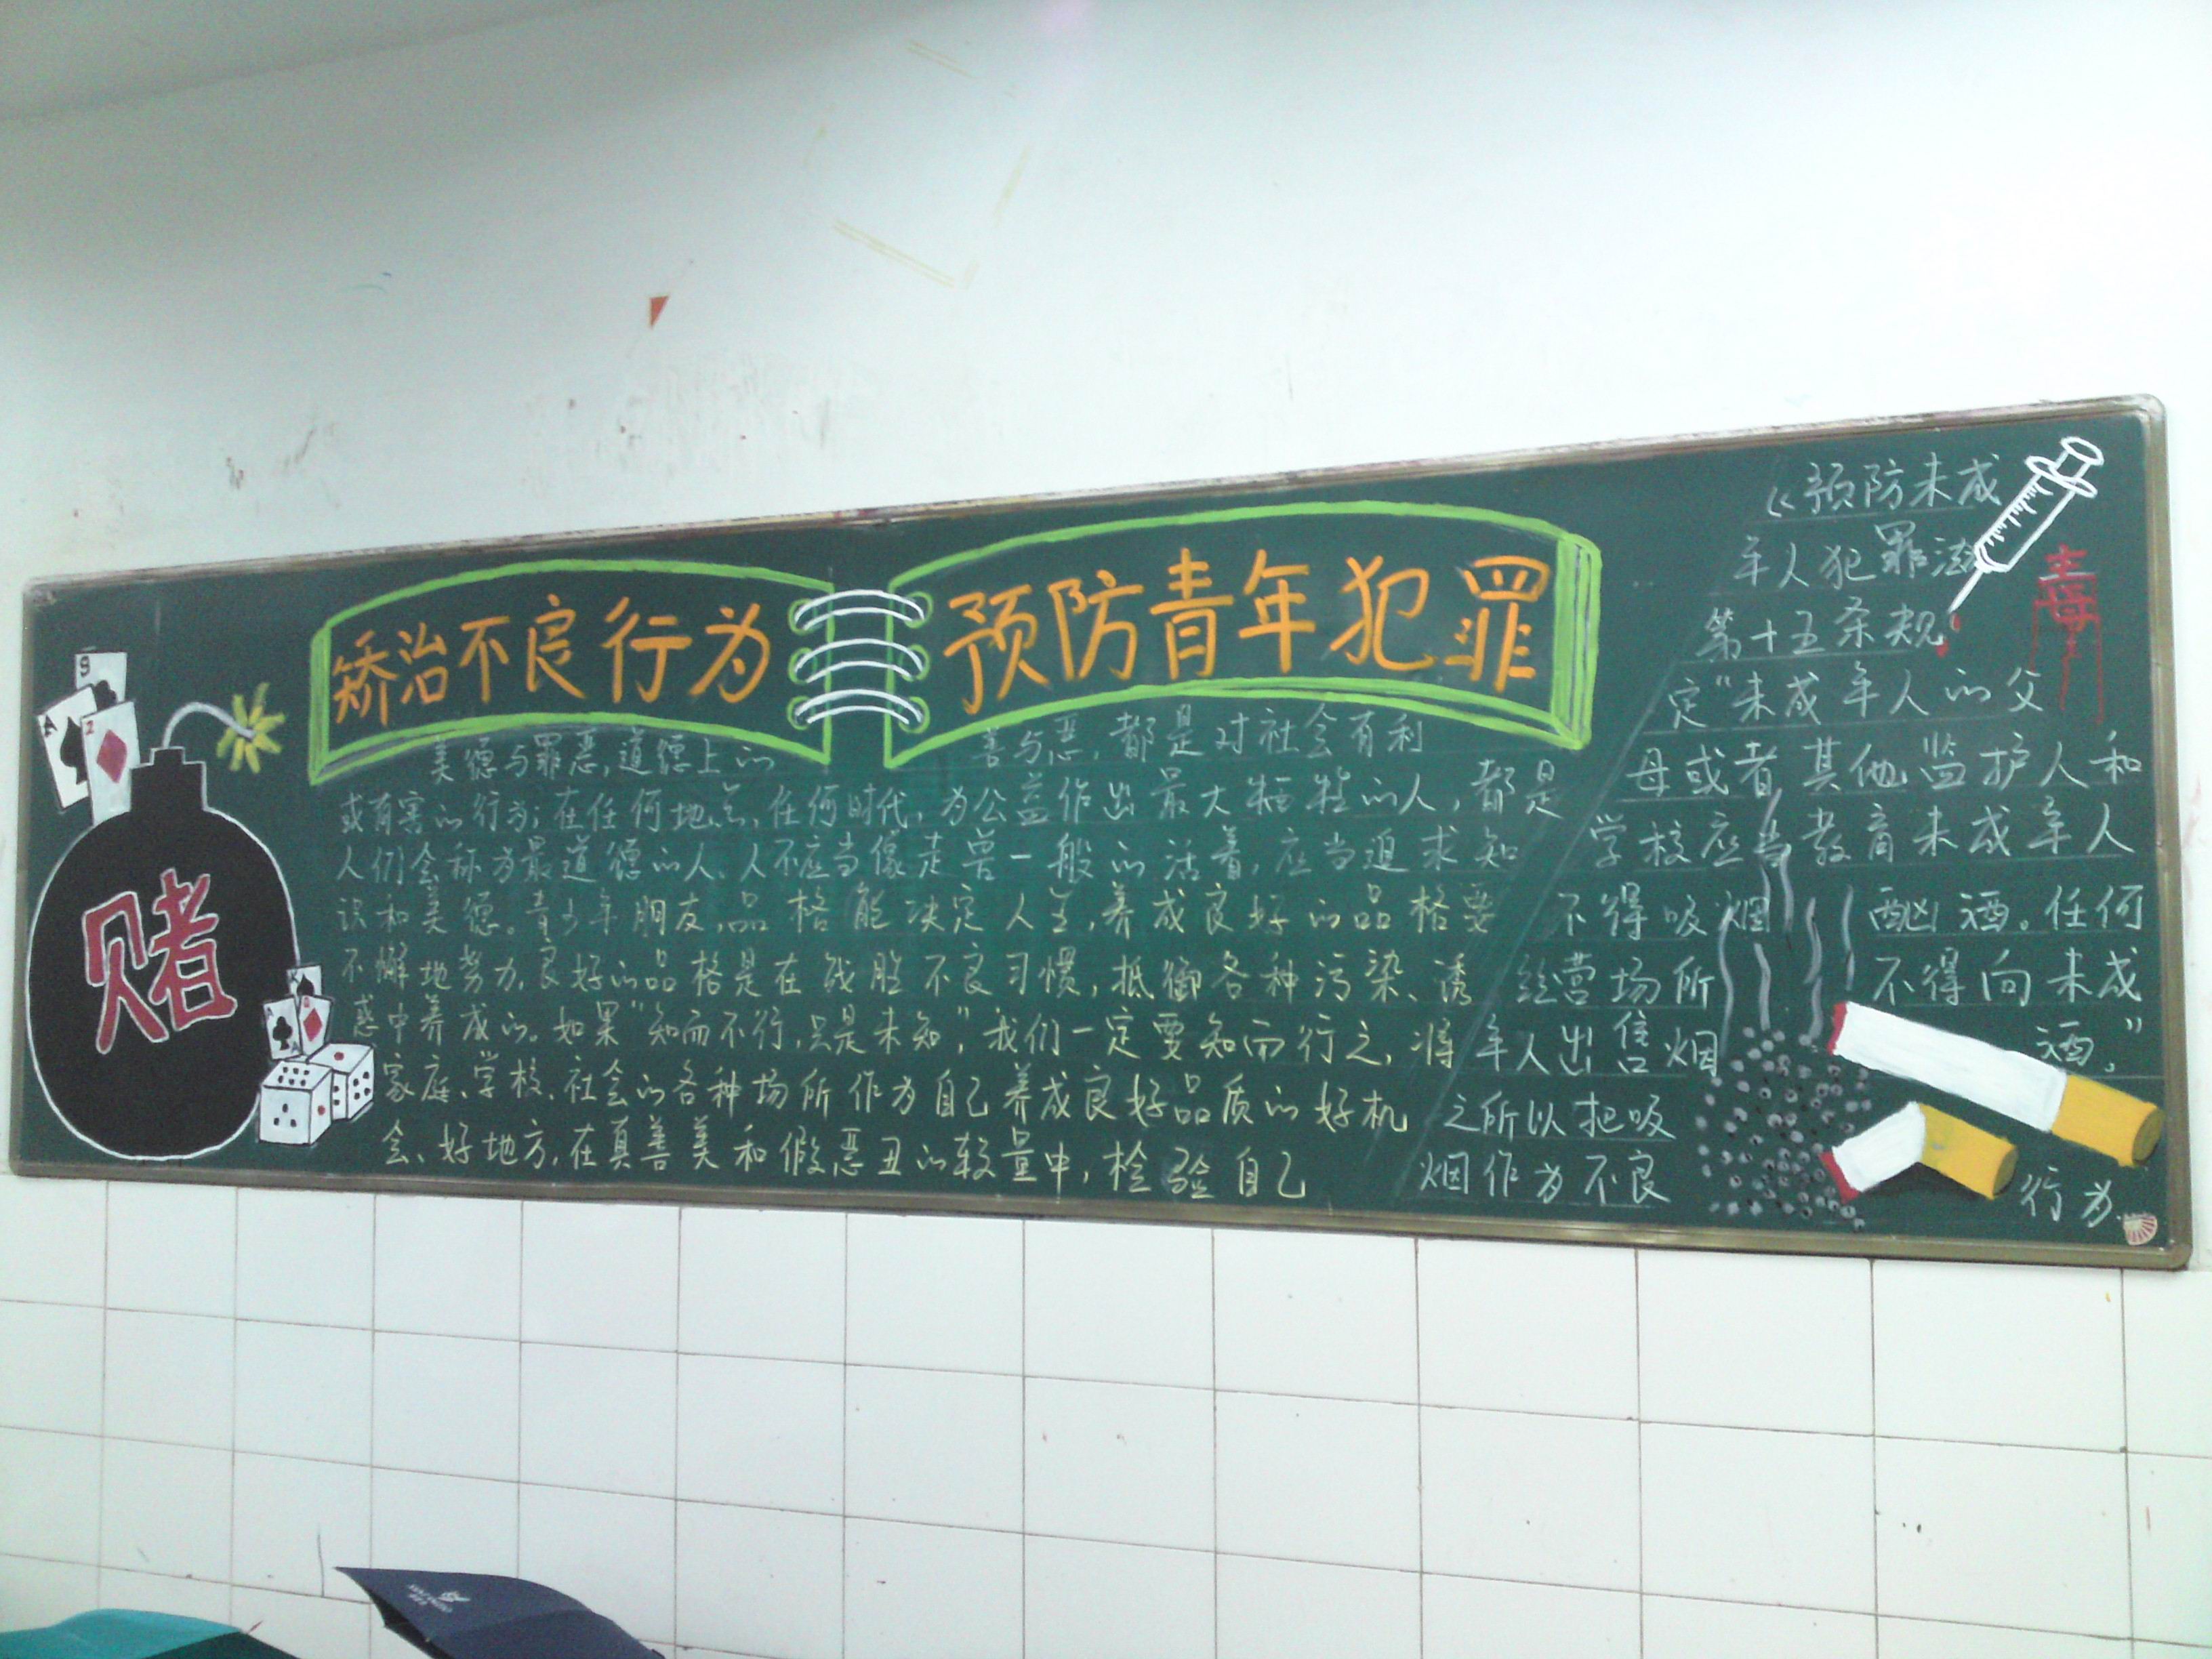 矫治不良行为
预防青年犯罪
赌
美德与罪恶,道德上的 善与恶,都是对社会有利
或有害的行为;在任何地点,任何时代,为公益作出最大牺牲的人,都是
人们会称为最道德的人、人不应当像走兽一般的活着,应当追求知
识和美德。青少年朋友,品格能决定人生,养成良好的品格要
不懈地努力,良好的品格是在战胜不良习惯,抵御各种污染、诱
惑中养成的。如果“知而不行,只是未知”,我们一定要知而行之,将
家庭、学校、社会的各种场所作为自己养成良好品质的好机
会、好地方,在真善美和假恶丑的较量中,检验自己
《预防未成
年人犯罪法
第十五条规
定“未成年人的父
母或者其他监护人和
学校应当教育未成年人
不得吸烟 酗酒。任何
经营场所 不得向未成
年人出售烟 酒。”
之所以把吸
烟作为不良 行为.
毒
9
A
2